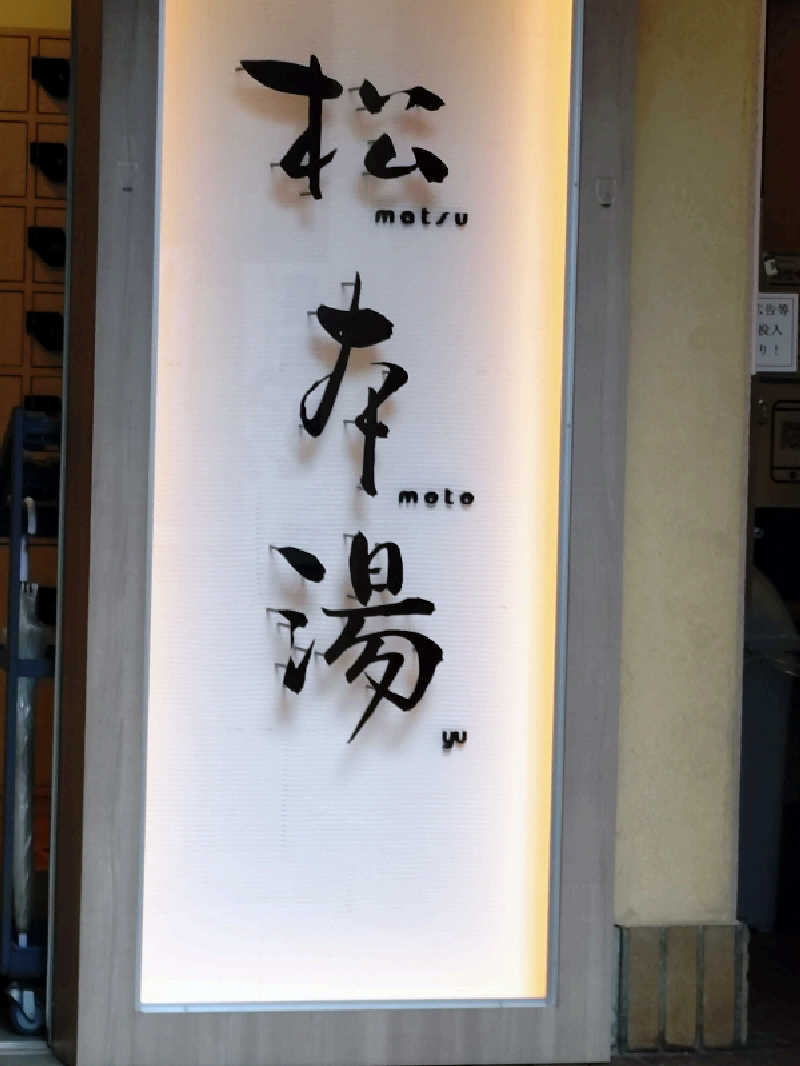 松
matsu
本
moto
湯
yu
広告等
投入
り！